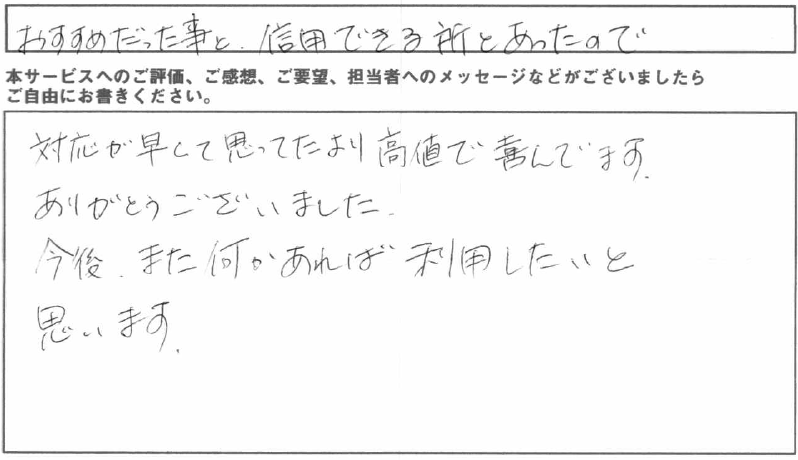 おすすめだった事と、信用できる所とあったので
本サービスへのご評価、ご感想、ご要望、担当者へのメッセージなどがございましたら
ご自由にお書きください。
対応が早くて思ってたより高値で喜んでます。
ありがとうございました。
今後、また何かあれば利用したいと
思います。